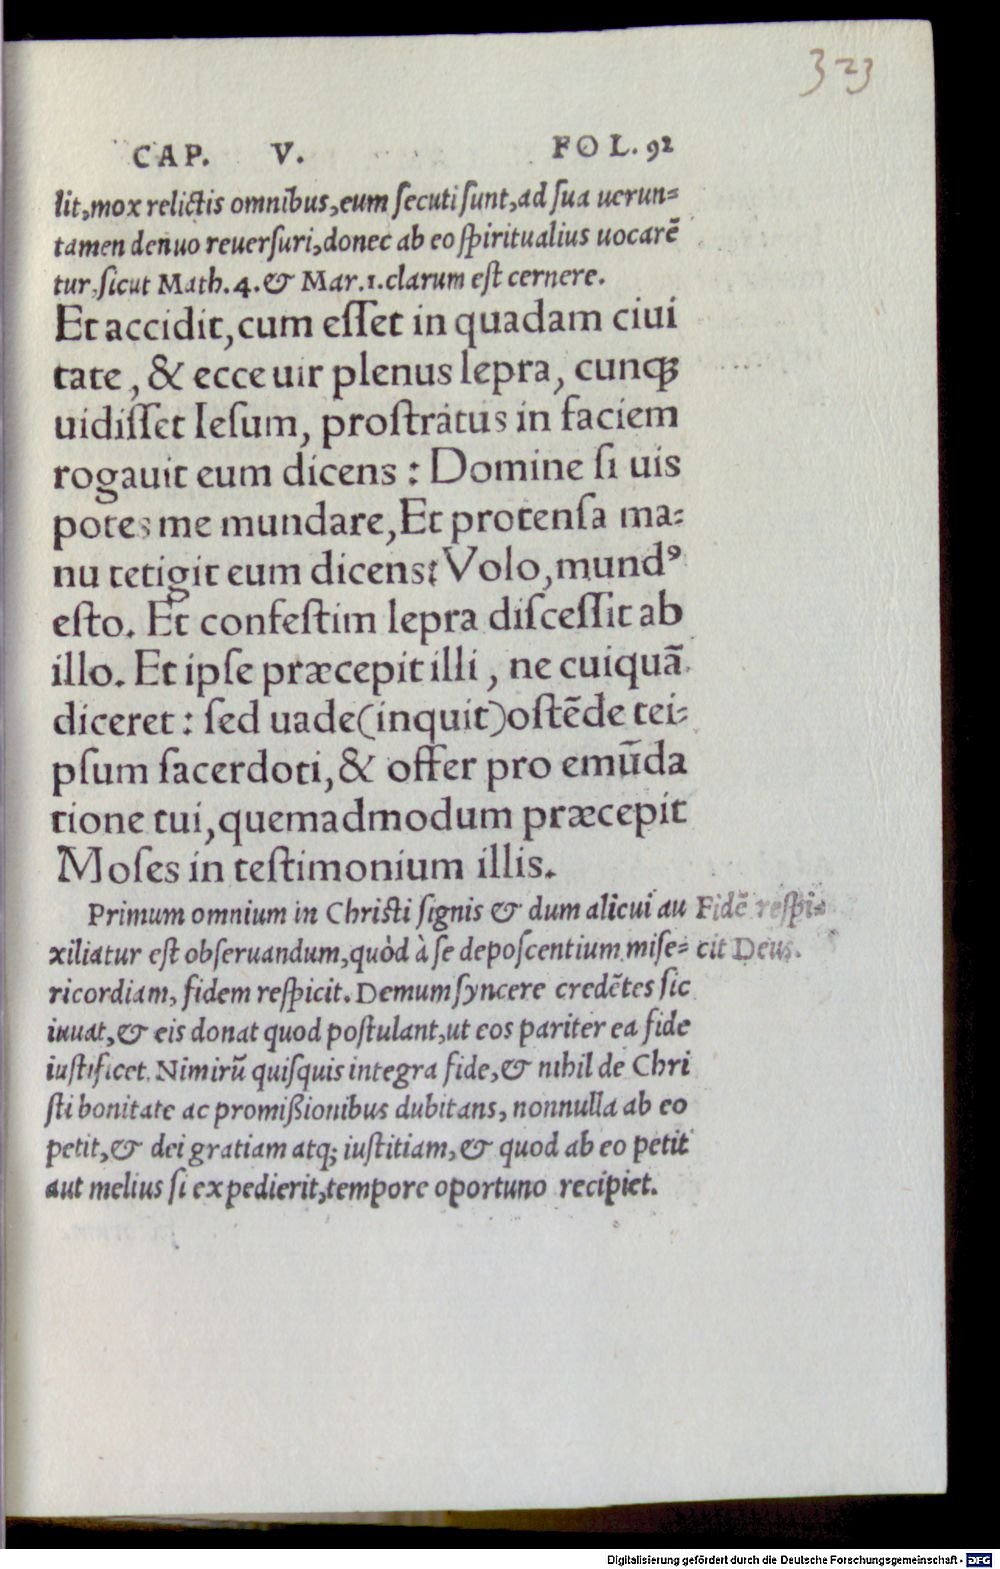 323
CAP. V. FOL. 92
lit, mox relictis omnibus, eum ſecuti ſunt, ad ſua uerun⸗
tamen denuo reuerſuri, donec ab eo ſpiritualius uocarē
tur, ſicut Math. 4. & Mar. 1. clarum eſt cernere.
Et accidit, cum eſſet in quadam ciui
tate, & ecce uir plenus lepra, cunqꝫ
uidiſſet Ieſum, proſtratus in faciem
rogauit eum dicens : Domine ſi uis
potes me mundare, Et protenſa ma⸗
nu tetigit eum dicens: Volo, mundꝰ
eſto. Et confeſtim lepra diſceſſit ab
illo. Et ipſe præcepit illi, ne cuiquā
diceret : ſed uade (inquit) oſtēde tei⸗
pſum ſacerdoti, & offer pro emūda
tione tui, quemadmodum præcepit
Moſes in teſtimonium illis.
Primum omnium in Chriſti ſignis & dum alicui au
Fidē reſpi⸗
xiliatur eſt obſeruandum, quòd à ſe depoſcentium miſe⸗
cit Deus.
ricordiam, fidem reſpicit. Demum ſyncere credētes ſic
iuuat, & eis donat quod poſtulant, ut eos pariter ea fide
iuſtificet. Nimirū quiſquis integra fide, & nihil de Chri
ſti bonitate ac promißionibus dubitans, nonnulla ab eo
petit, & dei gratiam atqꝫ iuſtitiam, & quod ab eo petit
aut melius ſi expedierit, tempore oportuno recipiet.
Digitalisierung gefördert durch die Deutsche Forschungsgemeinschaft - DFG